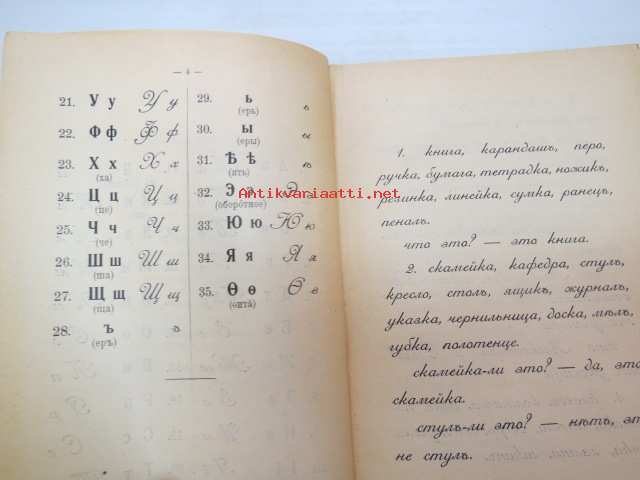 — 4 —
21. У у У у
22. Ф ф Ф ф
23. Х х Х х
(ха)
24. Ц ц Ц ц
(це)
25. Ч ч Ч ч
(че)
26. Ш ш Ш ш
(ша)
27. Щ щ Щ щ
(ща)
28. ъ ъ
(еръ)
29. ь ь
(ерь)
30. ы ы
(еры)
31. Ѣ ѣ ѣ
(ять)
32. Э э Э
(оборо́тное)
33. Ю ю Ю ю
34. Я я Я я
35. Ѳ ѳ Ѳ ѳ
(ѳита́)
Antikvariaatti.net
1. книга, карандашъ, перо,
ручка, бумага, тетрадка, ножикъ,
резинка, линейка, сумка, ранецъ,
пеналъ.
что это? — это книга.
2. скамейка, кафедра, стулъ,
кресло, столъ, ящикъ, журналъ,
указка, чернильница, доска, мѣлъ,
губка, полотенце.
скамейка-ли это? — да, это
скамейка.
стулъ-ли это? — нѣтъ, эт
не стулъ.